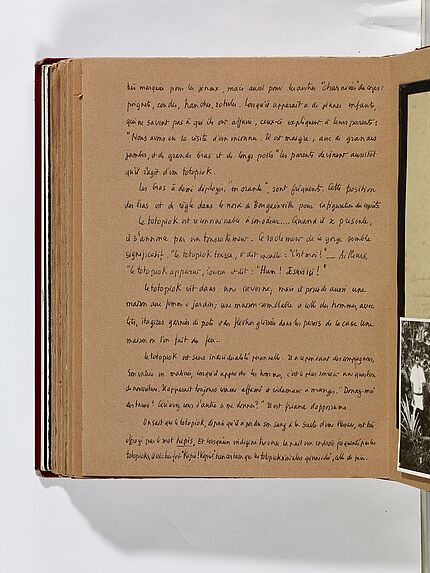 très marquées pour les genoux, mais aussi pour les autres "charnières" du corps:
poignets, coudes, hanches, rotules. Lorsqu'il apparaît à de jeunes enfants,
qui ne savent pas à qui ils ont affaire, ceux-ci expliquent à leurs parents:
"Nous avons eu la visite d'un inconnu. Il est maigre, avec de grandes
jambes, de grands bras et de longs poils" les parents devinent aussitôt
qu'il s'agit d'un totopiok.
Les bras à demi déployés, "en orante", sont fréquents. Cette position
des bras est de règle dans le nord de Bougainville pour la figuration des esprits
Le totopiok est reconnaissable à son odeur.... Quand il se présente,
il s'annonce par un toussotement. le raclement de sa gorge semble
significatif. "le totopiok toussa, et dit ensuite: "C'est moi!" — Ailleurs,
"le totopiok apparut, toussa et dit: "Hum!
Le totopiok vit dans une caverne, mais il possède aussi une
maison avec femme et jardins, une maison semblable à celle des hommes, avec
lits, étagères garnies de pots et des flèches glissées dans les parois de la case. Une
maison où l'on fait du feu..
Le totopiok est sans individualité personnelle. Il a cependant des compagnons,
lorsqu'il apparaît les hommes, c'est le plus souvent une question
de nourriture. Il apparaît toujours comme affamé et réclamant à manger. "Donnez-moi
des taros! Qu'avez-vous d'autre à me donner?" Il est friand d'opossums.
On sait que le totopiok, depuis qu'il a perdu son sang à la suite d'une blessure, est très
effrayé par le mot kepis. Et lorsqu'un indigène traverse la nuit un endroit fréquenté par les
totopioks, il crie bien fort "Kepis! Kepis!"